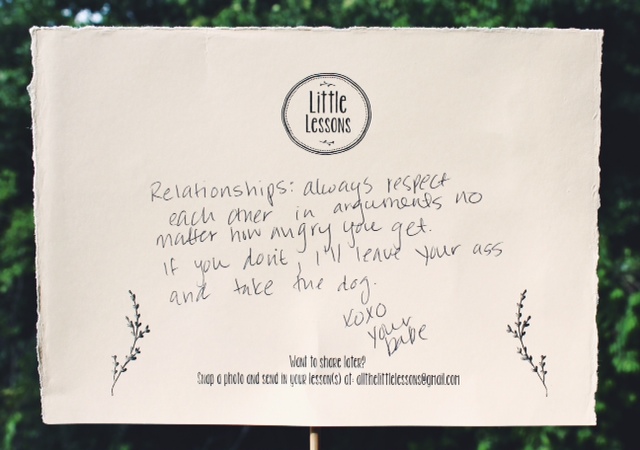 Little
Lessons
Relationships: always respect
each other in arguments no
matter how angry you get.
If you don't, I'll leave your ass
and take the dog.
xoxo
your
babe
Want to share later?
Snap a photo and send in your lesson(s) at: allthelittlelessons@gmail.com